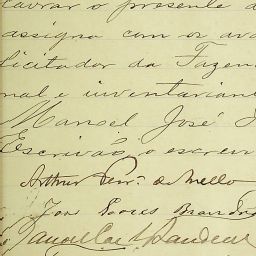 lavrar o presente a
assigna com os ava
licitador da Fazen
nal e inventarian
Manoel José
Escrivão, o escrevi
Arthur Ferr. de Mello
José Brandão
Manoel